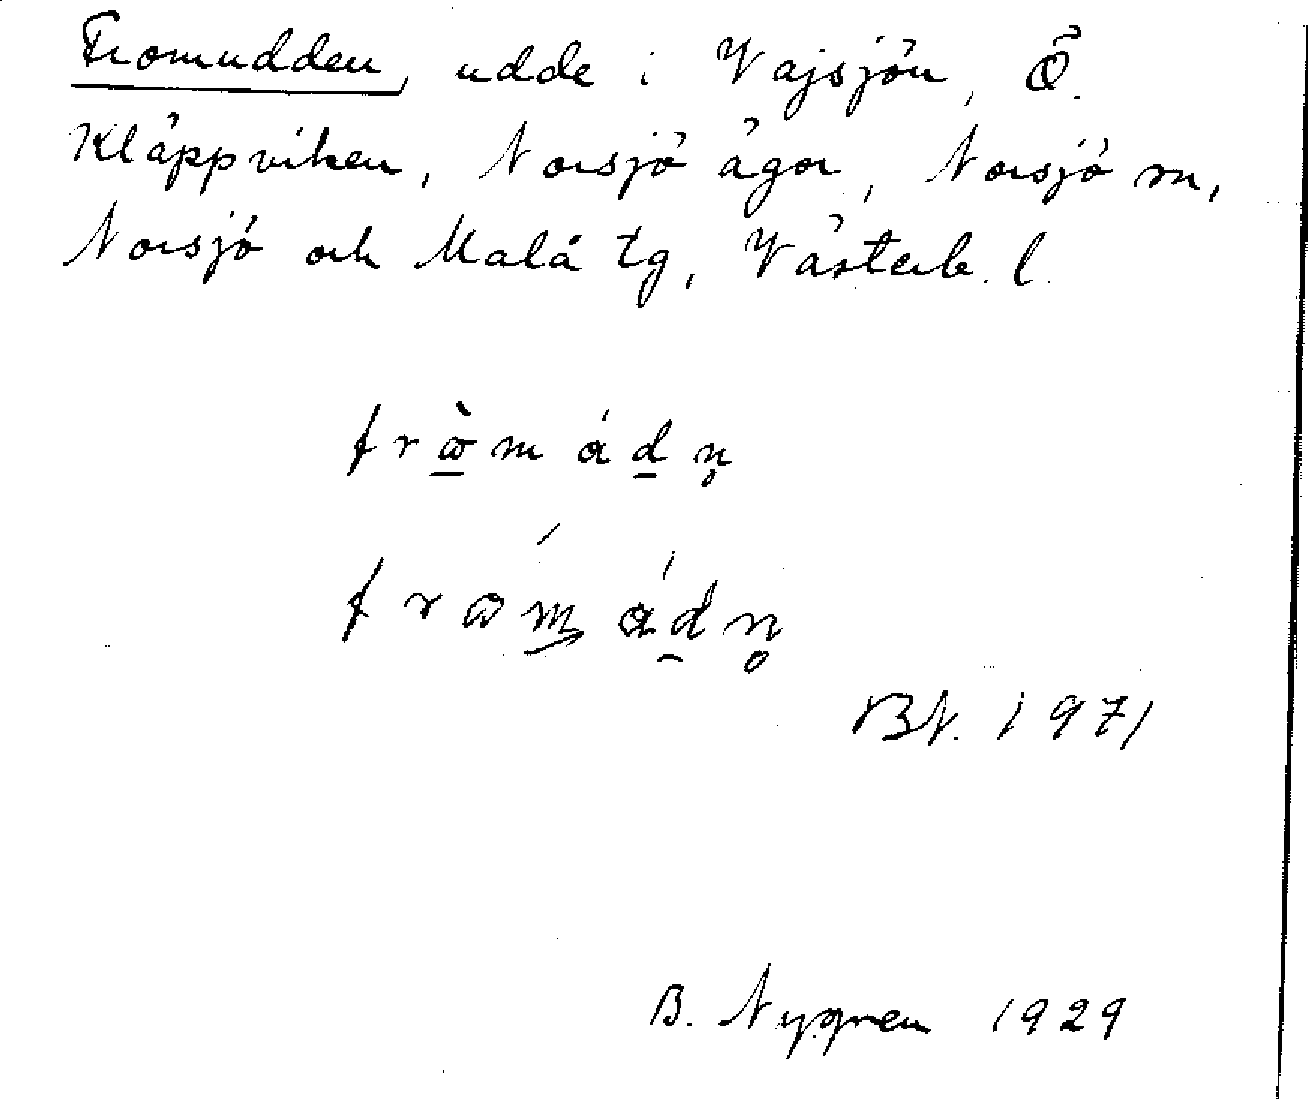 Fromudden, udde i Vajsjön, Ö.
Kläppviken, Norsjö ägor, Norsjö sn,
Norsjö och Malå tg, Västerb. l.
fr&#x0252;̀m ádn̥
frωm ádn̥
BN. 1971
B. Nygren 1929